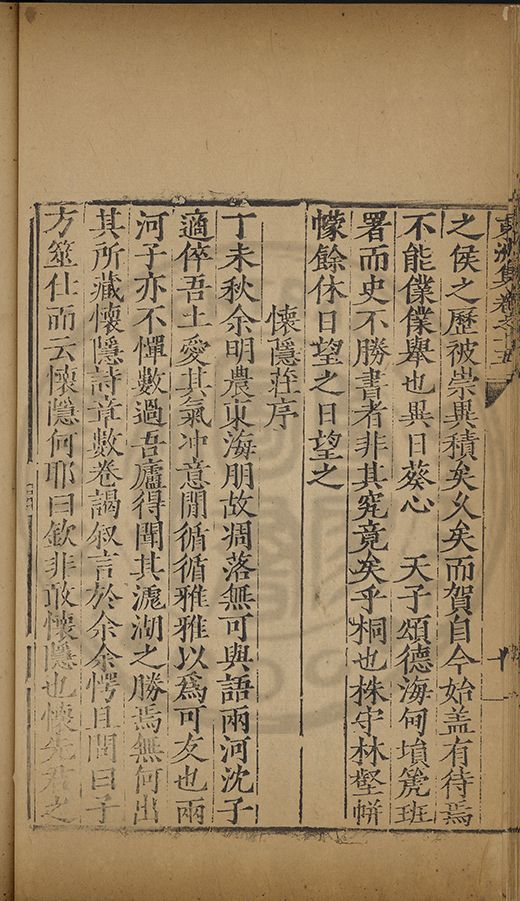 之侯之歷被崇異積矣久矣而賀自今始盖有待焉
不能僕僕舉也異日葵心　天子頌德海甸塤箎班
署而史不勝書者非其究竟矣乎桐也株守林壑帡
幪餘休日望之日望之
懷隱莊序
丁未秋余明農東海朋故凋落無可與語兩河沈子
適倅吾土愛其氣冲意閒循循雅雅以爲可友也兩
河子亦不憚數過吾廬得聞其滮湖之勝焉無何出
其所藏懷隱詩章數卷謁叙言於余余愕且問曰子
方筮仕而云懷隱何耶曰欽非敢懷隱也懷先君之